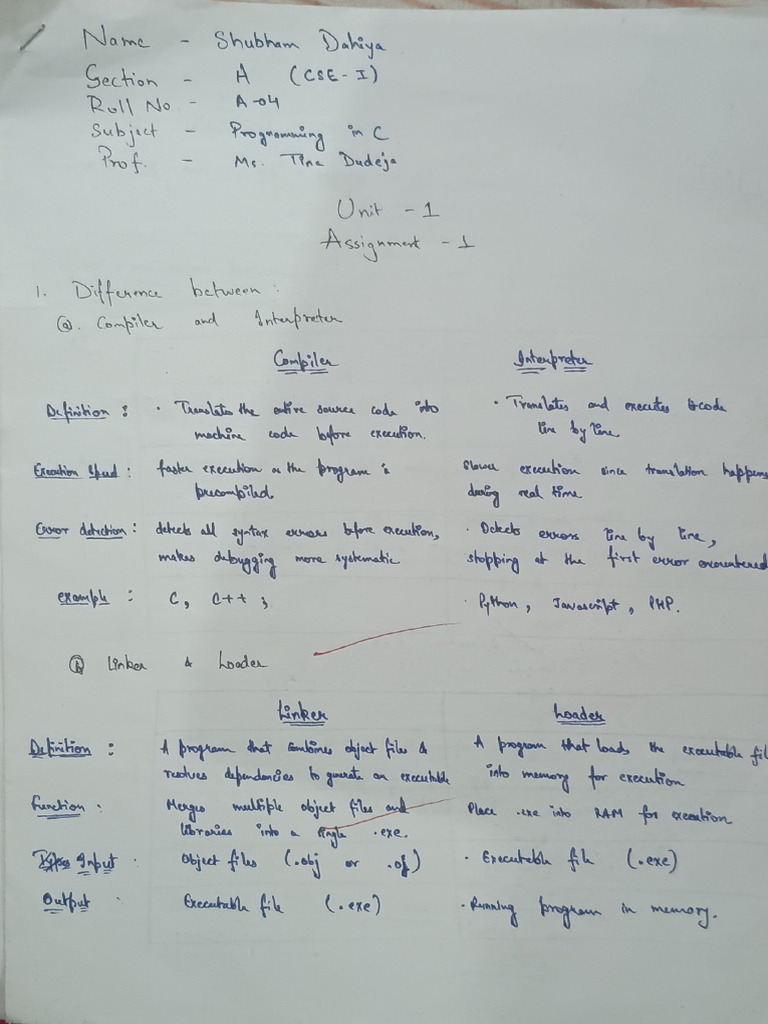 Name - Shubham Dahiya
Section - A (CSE-I)
Roll No - A-04
Subject - Programming in C
Prof. - Ms. Tina Dudeja
Unit - 1
Assignment - 1
1. Difference between :
(a). Compiler and Interpreter
Compiler Interpreter
Definition : · Translates the entire source code into machine code before execution. · Translates and executes code line by line
Execution Speed : faster execution as the program is precompiled. Slower execution since translation happens during real time
Error detection : detects all syntax errors before execution, makes debugging more systematic · Detects errors line by line, stopping at the first error encountered
example : C, C++ ; · Python, Javascript, PHP.
(b) Linker & Loader
Linker Loader
Definition : A program that combines object files & resolves dependencies to generate an executable A program that loads the executable fil into memory for execution
Function : Merges multiple object files and libraries into a single .exe. Place .exe into RAM for execution
Input : Object files (.obj or .of) · Executable file (.exe)
Output : Executable file (.exe) · Running program in memory.